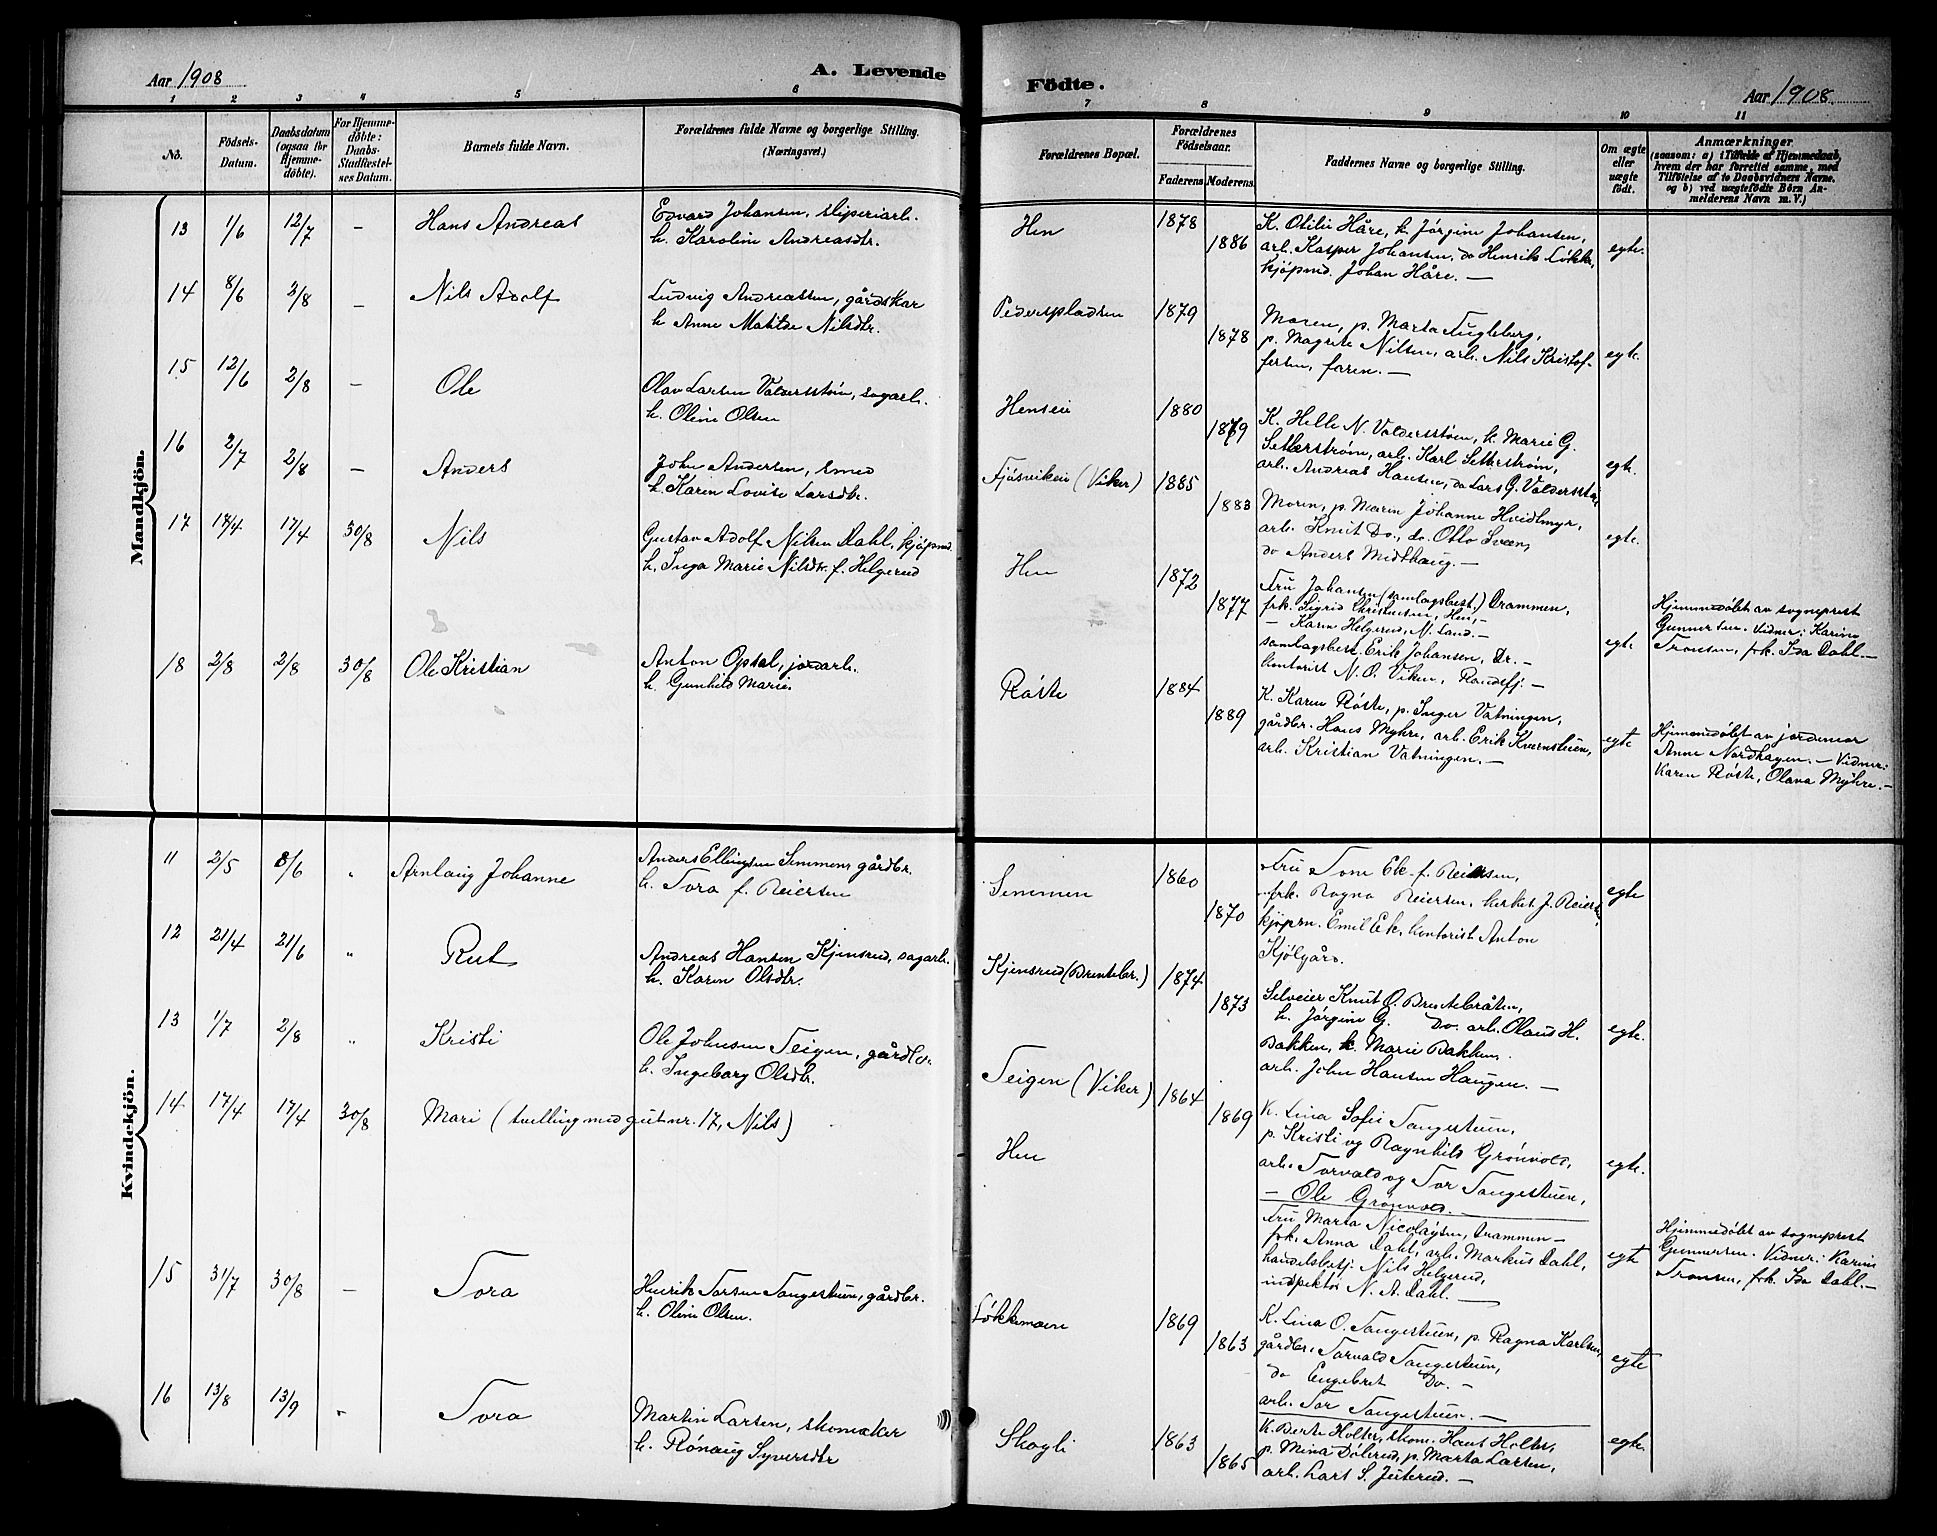 Aar 1908
A. Levende
1 2 3 4 5 6
No.
Födsels-
Datum.
Daabsdatum
(ogsaa for
Hjemme-
döbte).
For Hjemme-
döbte:
Daabs-
Stadfæstel-
ses Datum.
Barnets fulde Navn.
Forældrenes fulde Navne og borgerlige Stilling.
(Næringsvei.)
Mandkjön.
13 1/6 12/7 – Hans Andreas
Edvard Johansen, sliperiarb.
h. Karoline Andreasdtr.
14 8/6 2/8 – Nils Adolf
Ludvig Andreassen, gårdskar
h. Anne Matilde Nilsdtr.
15 12/6 2/8 – Ole
Olav Larsen Valdersstøen, sagarb.
h. Oline Olsen
16 2/7 2/8 – Anders
John Andersen, smed
h. Karen Lovise Larsdtr.
17 17/4 17/4 30/8 Nils
Gustav Adolf Nilsen Dahl, kjøpmd.
h. Inga Marie Nilsdtr. f. Helgerud
18 2/8 2/8 30/8 Ole Kristian
Anton Opsal, jordarb.
h. Gunhild Marie
Kvindekjön.
11 2/5 8/6 " Arnlaug Johanne
Anders Ellingsen Semmen gårdbr.
h. Tora f. Reiersen
12 21/4 21/6 " Rut
Andreas Hansen Kjensrud, sagarb.
h. Karen Olsdtr.
13 1/7 2/8 " Kristi
Ole Johnsen Teigen, gårdbr.
h. Ingeborg Olsdtr.
14 17/4 17/4 30/8 Mari (tvelling med gut nr. 17, Nils)
15 31/7 30/8 – Tora
Henrik Torsen Tangestuen, gårdbr.
h. Oline Olsen.
16 13/8 13/9 " Tora
Martin Larsen, skomaker
h. Rønaug Syversdtr
Födte.
Aar 1908
7 8 9 10 11
Forældrenes Bopæl.
Forældrenes
Födselsaar.
Faderens. Moderens.
Faddernes Navne og borgerlige Stilling.
Om ægte
eller
uægte
födt.
Anmærkninger
(saasom: a) i Tilfælde af Hjemmedaab,
hvem der har forrettet samme, med
Tilföielse af to Daabsvidners Navne,
og b) ved uægtefödte Börn An-
melderens Navn m. V.)
Hen 1878 1886
K. Otilie Håre, k. Jørgine Johansen,
arb. Kasper Johansen, do Henrik Løkke,
kjøpmd. Johan Håre. –
egte.
Pederspladsen 1879 1878
Moren, p. Marta Fugleberg,
p. Magrete Nilsen, arb. Nils Kristof-
fersen, faren. –
egte.
Henseie 1880 1879
K. Helle N. Valdersstøen, k. Marie G.
Setterstrøm, arb. Karl Setterstrøm,
arb. Andreas Hansen, do Lars G. Valdersstøen,
egte.
Fjøsvikeie (Viker) 1885 1883
Moren, p. Maren Johanne Hvidtmyr,
arb. Knut Do., do. Otto Sveen,
do Anders Midthaug. –
egte.
Hen 1872 1877
Fru Johansen (samlagsbest.) Drammen,
frk. Sigrid Christensen, Hen, –
– Karen Helgerud, N. Land. –
samlagsbest. Erik Johansen, Dr. –
kontorist N. O. Viken, Randsfj. –
egte
Hjemmedøbt av sogneprest
Gunnersen. Vidner: Karine
Tronsen, frk. Ida Dahl. –
Røste 1884 1889
K. Karen Røste, p. Inger Vatningen,
gårdbr. Hans Myhre, arb. Erik Kvernstuen,
arb. Kristian Vatningen. –
egte
Hjemmedøbt av jordemor
Anne Nordhagen. – Vidner:
Karen Røste, Olava Myhre. –
Semmen 1860 1870
Fru Tone Ek f. Reiersen,
frk. Ragna Reiersen, kirkes. J. Reiersen,
kjøpm. Emil Ek, kontorist Anton
Kjølgård.
egte
Kjensrud (Brentebr.) 1874 1873
Selveier Knut O. Brentebråten,
k. Jørgine G. Do. arb. Olaus H.
Bakken, k. Marie Bakken.
arb. John Hansen Haugen. –
egte.
Teigen (Viker) 1864 1869
K. Lina Sofie Tangestuen,
p. Kristi og Ragnhild Grønvold,
arb. Torvald og Tor Tangestuen,
– Ole Grønvold. –
egte.
Hen
Fru Marta Nicolaysen, Drammen –
frk. Anna Dahl, arb. Markus Dahl,
handelsbetj. Nils Helgerud,
inspektør N. A. Dahl. –
egte
Hjemmedøbt av sogneprest
Gunnersen. Vidner: Karine
Tronsen, frk. Ida Dahl. –
Løkkemoen 1869 1863
K. Lina O. Tangestuen, p. Ragna Karlsen,
gårdbr. Torvald Tangestuen,
do Engebret Do. –
arb. Tor Tangestuen. –
egte
Skogli 1863 1865
K. Berte Holter, skom. Hans Holter,
p. Mina Dølerud, p. Marta Larsen,
arb. Lars S. Jeterud. –
egte.